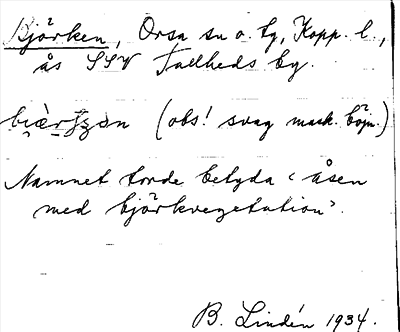 Björken, Orsa sn o. tg, Kopp. l.,
ås SSV Tallheds by.
(obs! svag mask. böjn.)
Namnet torde betyda 'åsen
med björkvegetation'.
B. Lindén 1934.